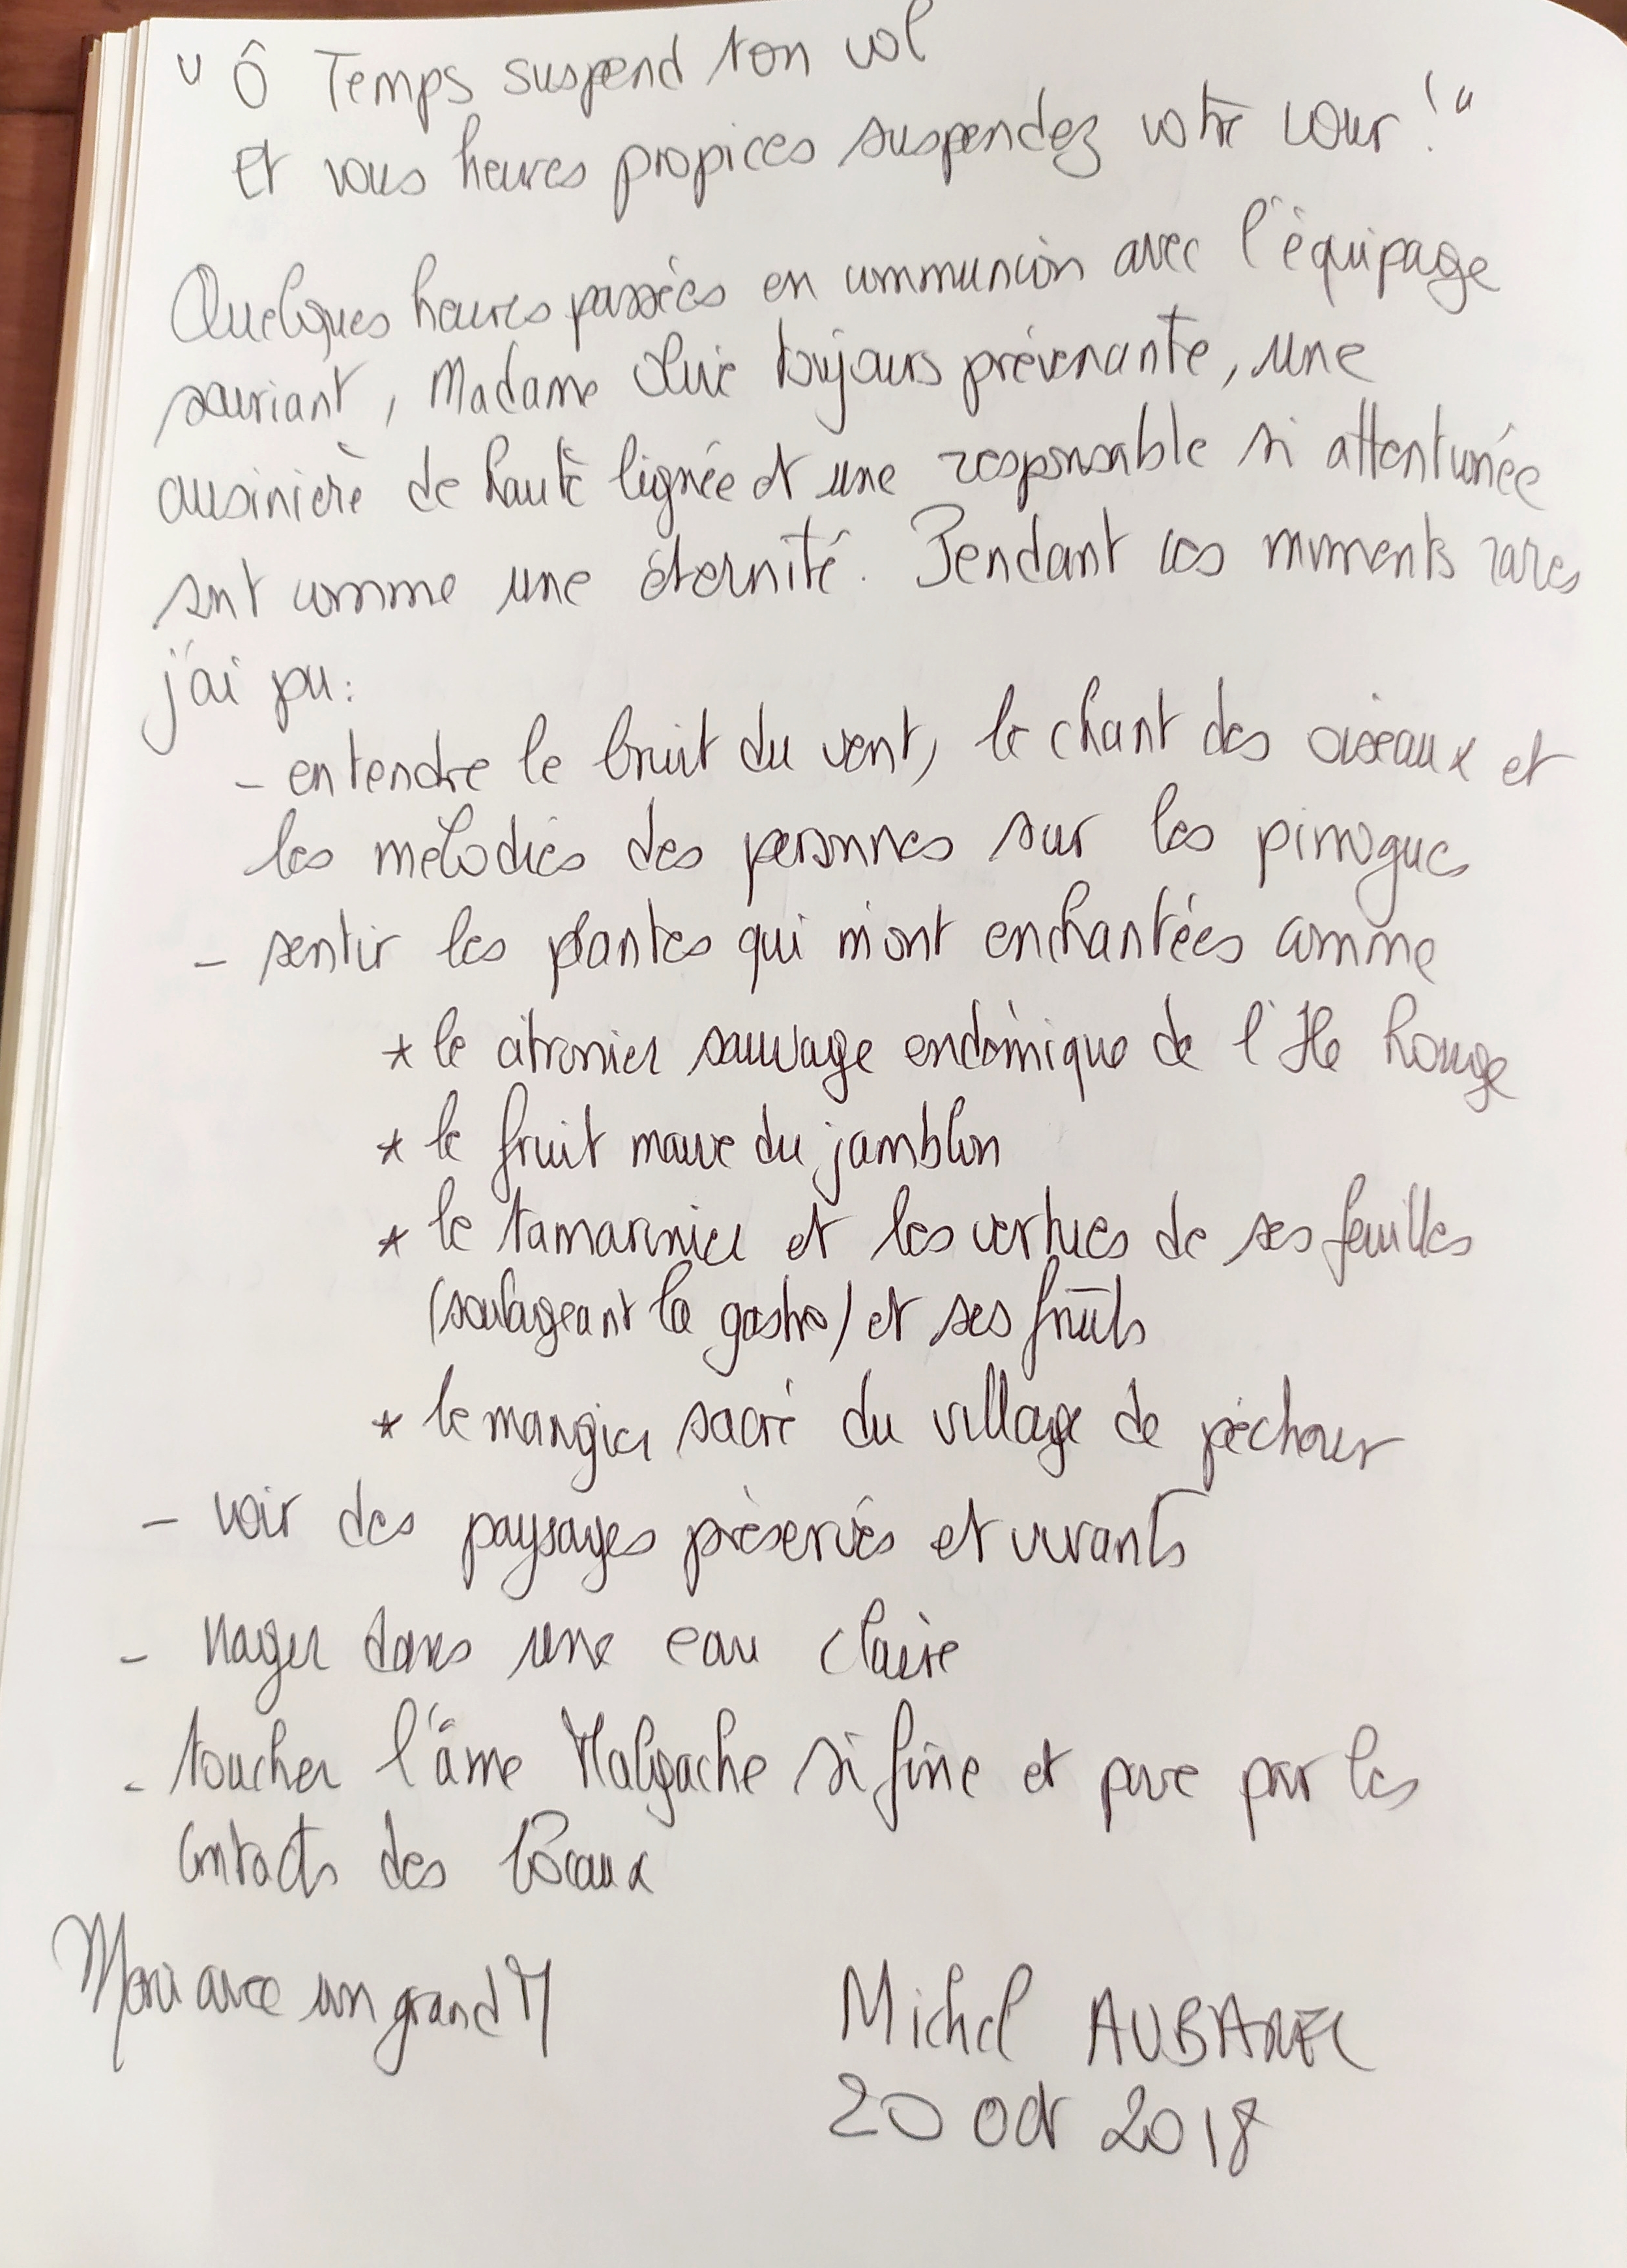 " Ô Temps suspend ton vol
Et vous heures propices suspendez votre cour ! "
Quelques heures passées en communion avec l'équipage
souriant, Madame toujours prévenante, une
cuisinière de haute lignée et une responsable si attentionnée
sont comme une éternité. Pendant ces moments rares
j'ai pu :
- entendre le bruit du vent, le chant des oiseaux et
les mélodies des personnes sur les pirrogues
- sentir les plantes qui m'ont enchantées comme
* le citronier sauvage endémique de l'Ile Rouge
* le fruit mauve du jamblon
* le tamarinier et les vertues de ses feuilles
(soulageant la gastro) et ses fruits
* le mangier sacré du village de pêcheur
- voir des paysages préservés et vivants
- nager dans une eau claire
- toucher l'âme Malgache si fine et pure par les
contacts des locaux
Merci avec un grand M
Michel AUBANEL
20 oct 2018